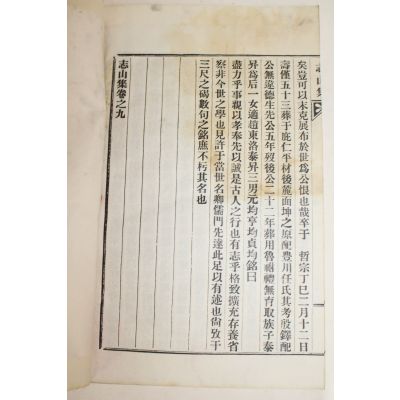 矣豈可以未克展布於世爲公恨也哉卒于 哲宗丁巳二月十二日
壽僅五十三葬于庇仁平材後麓面坤之原配豊川任氏其考殷鐸配
公無違德生先公五年歿後公二十二年葬用魯祔禮無育取族子泰
昇爲后一女適趙東洛泰昇三男元均亨均貞均銘曰
盡力乎事親以孝奉先以誠是古人之行也有志乎格致擴充存養省
察非今世之學也見許于當世名卿儒門先達此足以有述也尙攷于
三尺之碣數句之銘庶不朽其名也
志山集卷之九
志山集